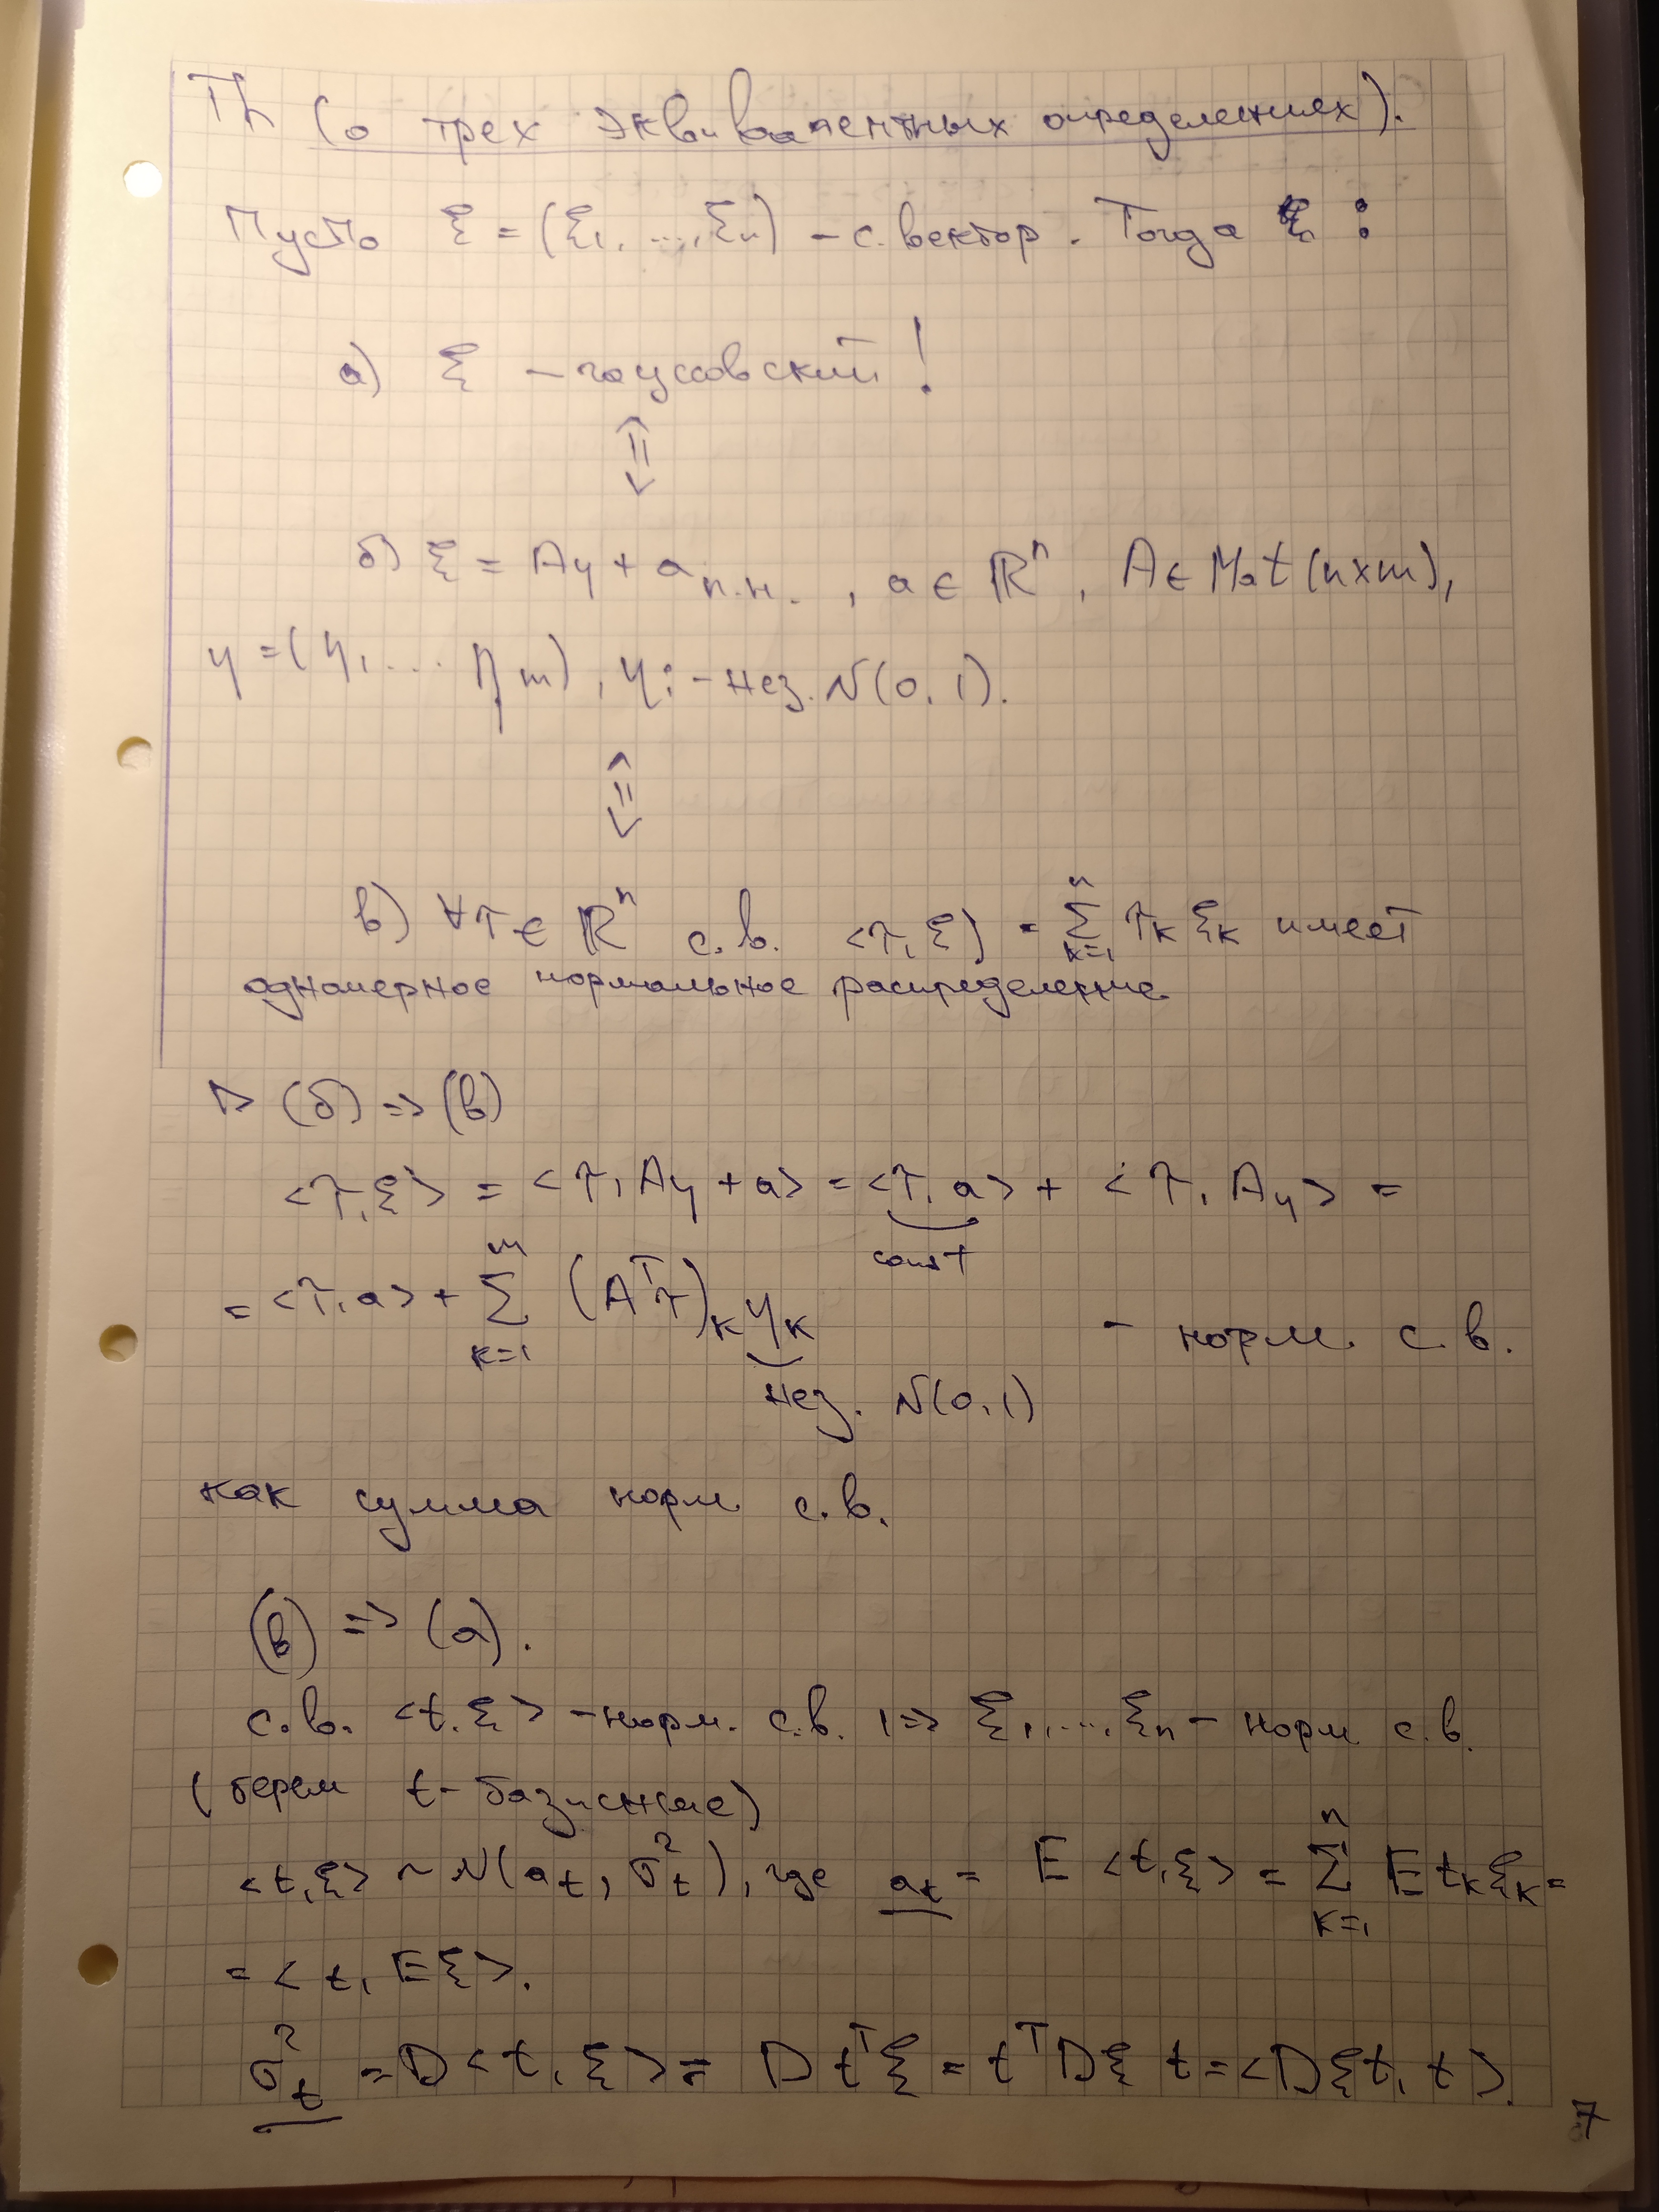 Th (о трех эквивалентных определениях).
Пусть ξ = (ξ₁, ..., ξₙ) – с. вектор. Тогда ξ :
а) ξ – гауссовский!
⇕
б) ξ = Aη + a п.н. , a ∈ ℝⁿ, A ∈ Mat(n×m),
η = (η₁ ... ηₘ), ηᵢ – нез. N(0, 1).
⇕
в) ∀τ ∈ ℝⁿ с.в. <τ, ξ) = ∑ₖ₌₁ⁿ τₖ ξₖ имеет
одномерное нормальное распределение
▷ (б) => (в)
<τ, ξ> = <τ, Aη + a> = <τ, a> + <τ, Aη> =
const
= <τ, a> + ∑ₖ₌₁ᵐ (Aᵀτ)ₖ ηₖ – норм. с.в.
нез. N(0, 1)
как сумма норм с.в.
(в) => (а).
с.в. <t, ξ> – норм. с.в. , => ξ₁, ..., ξₙ – норм с.в.
(берем t – базисные)
<t, ξ> ~ N(aₜ, σₜ²), где aₜ = E <t, ξ> = ∑ₖ₌₁ⁿ E tₖξₖ =
= <t, Eξ>.
σₜ² = D<t, ξ> = D tᵀξ = tᵀDξ t = <Dξt, t>.
7